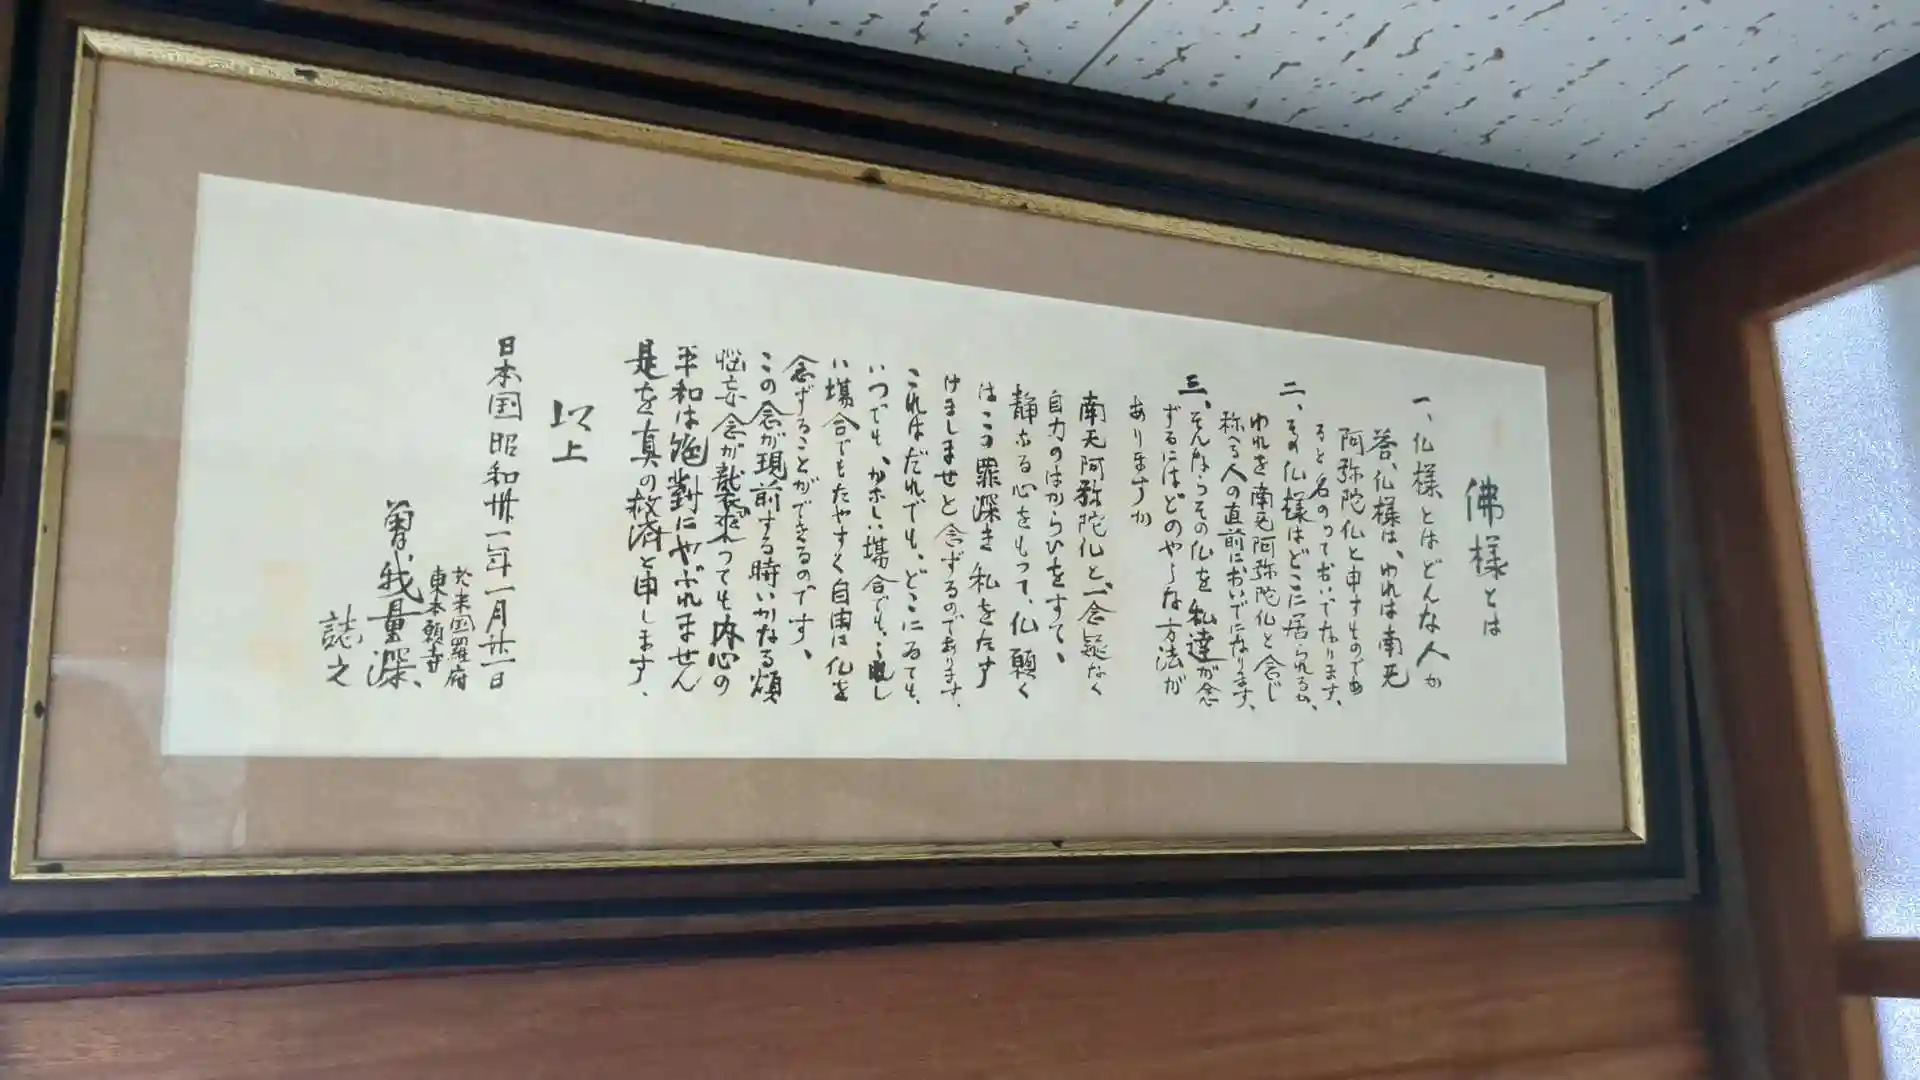 佛様とは
一、仏様とはどんな人か
答、仏様は、われは南无
阿弥陀仏と申すものであ
ると名のっておいでなります、
二、その仏様はどこに居られるか、
われを南无阿弥陀仏と念じ
称へる人の直前においでになります、
三、そんならその仏を私達が念
ずるにはどのやうな方法が
ありますか
南无阿弥陀仏と、一念疑なく
自力のはからひをすて、
静かなる心をもって、仏願く
はこの罪深き私をたす
けましませと念ずるのであります、
これはだれでも、どこにゐても、
いつでも、かなしい場合でも、うれし
い場合でもたやすく自由に仏を
念ずることができるのです、
この念が現前する時いかなる煩
悩妄念が襲来っても内心の
平和は絶對にやぶれません
是を真の救済と申します、
以上
日本国昭和卅一年一月廿一日
於米国羅府
東本願寺
曽我量深、
誌之